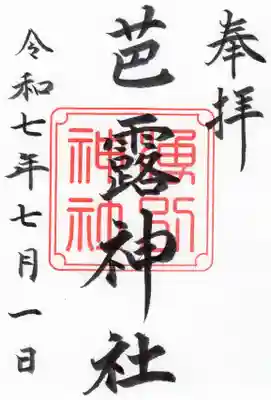 奉拝
芭露神社
湧別神社
令和七年七月一日